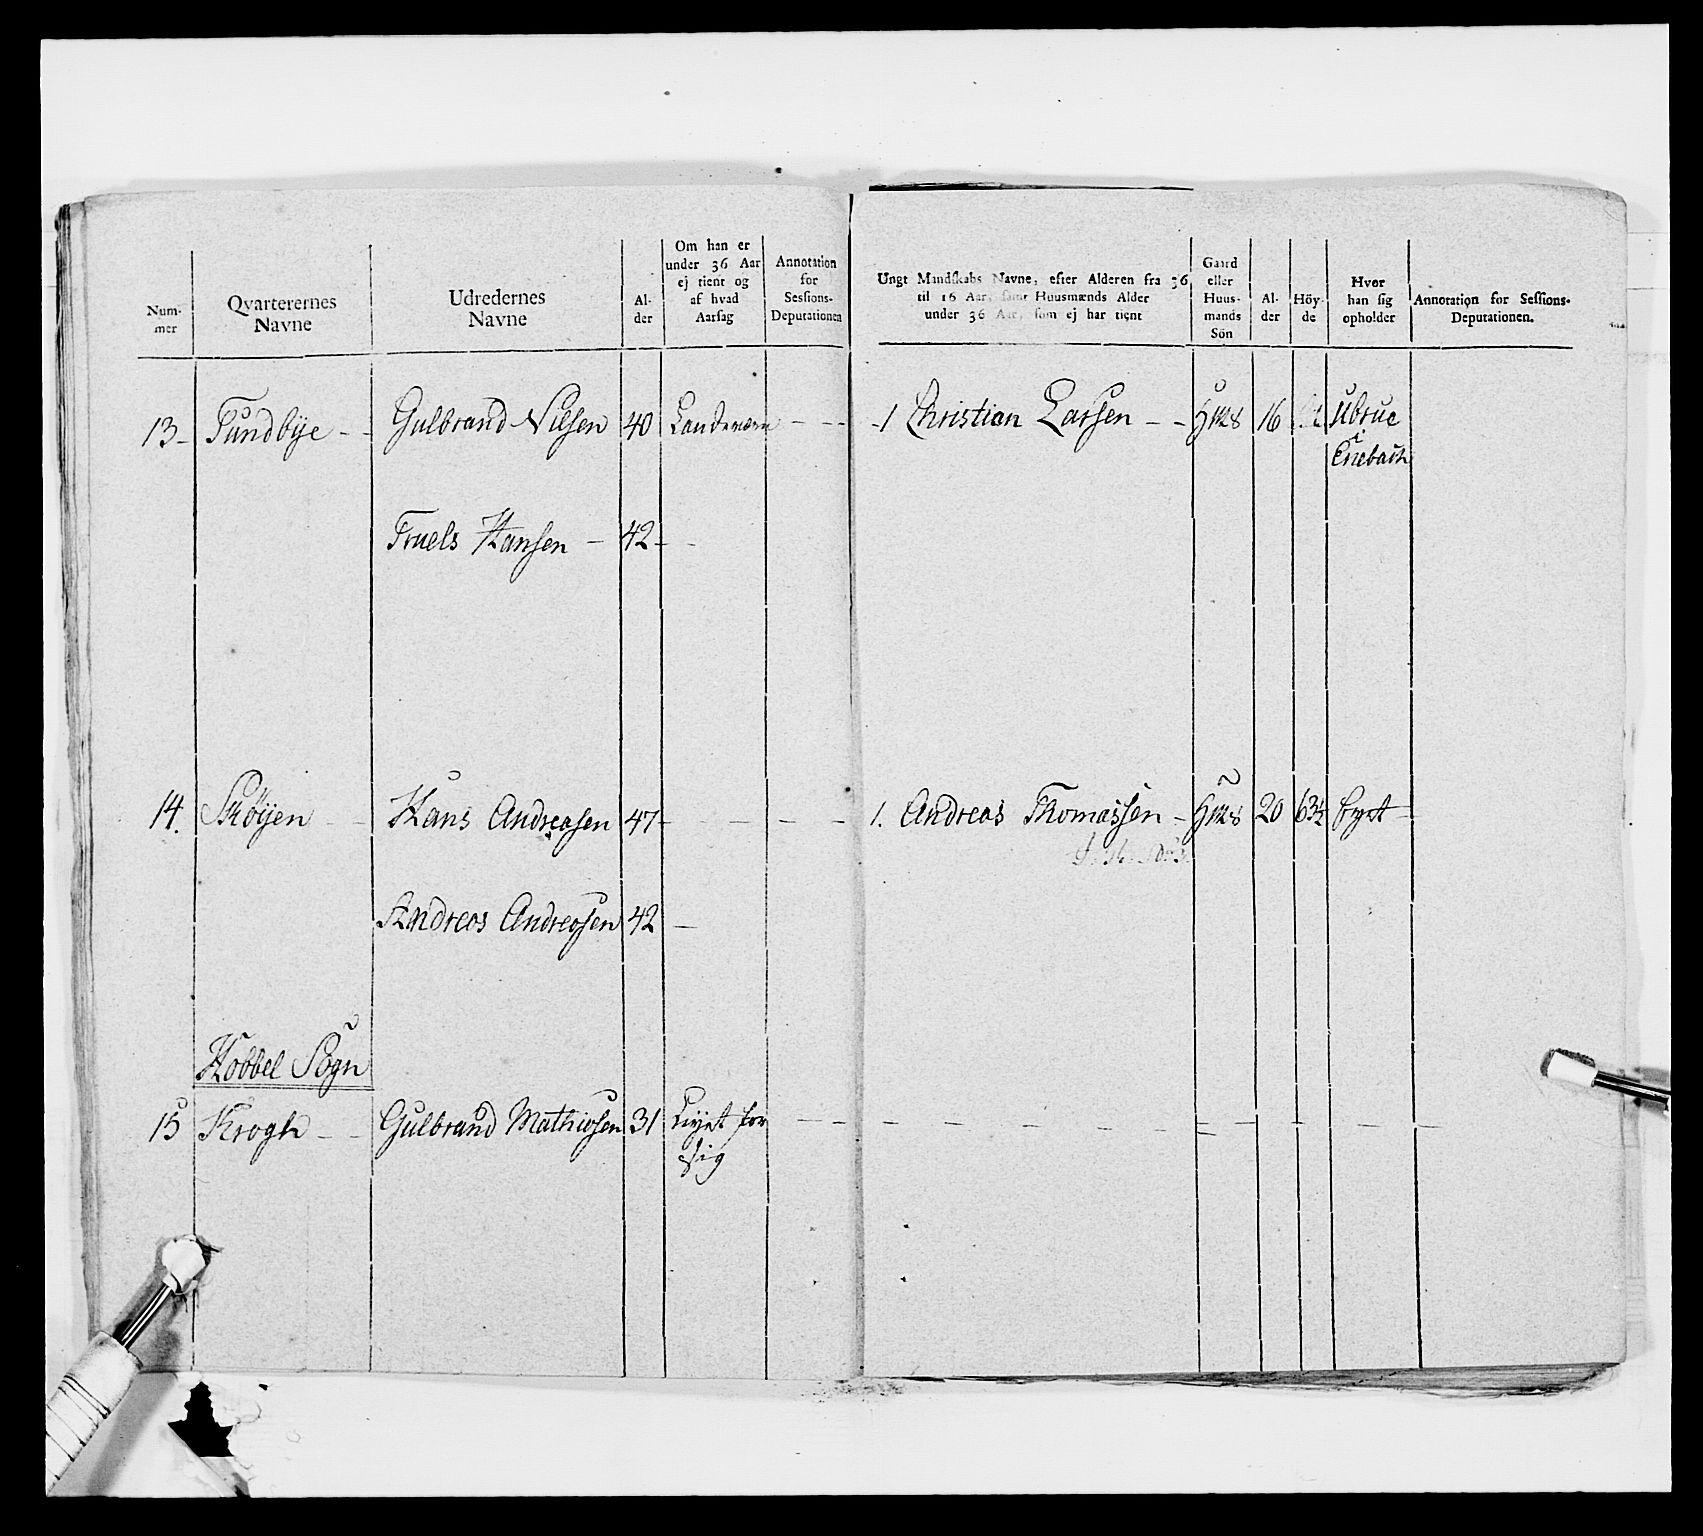 Num-
mer
Qvarterernes
Navne
Udredernes
Navne
Al-
der
Om han er
under 36 Aar
ej tient og
af hvad
Aarsag
Annotation
for
Sessions-
Deputationen
Ungt Mandskabs Navne, efter Alderen fra 36
til 16 Aar, samt Huusmænds Alder
under 36 Aar, som ej har tient
Gaard
eller
Huus-
mands
Sön
Al-
der
Höy-
de
Hvor
han sig
opholder
Annotation for Sessions-
Deputationen.
13 - Tundbÿe - - Gulbrand Nilsen 40 Landværn - - - 1 Christian Larsen - - 16 Ubrue
i
Enebach
Truels Hansen - 42 - -
14. Skøÿen - - Hans Andreasen 47 - - - - - 1. Andreas Thomassen - 20 63½
Andreas Andreasen 42 -
Hobbel Sogn
15 Krogh - - Gulbrand Mathiesen 31 for
sig